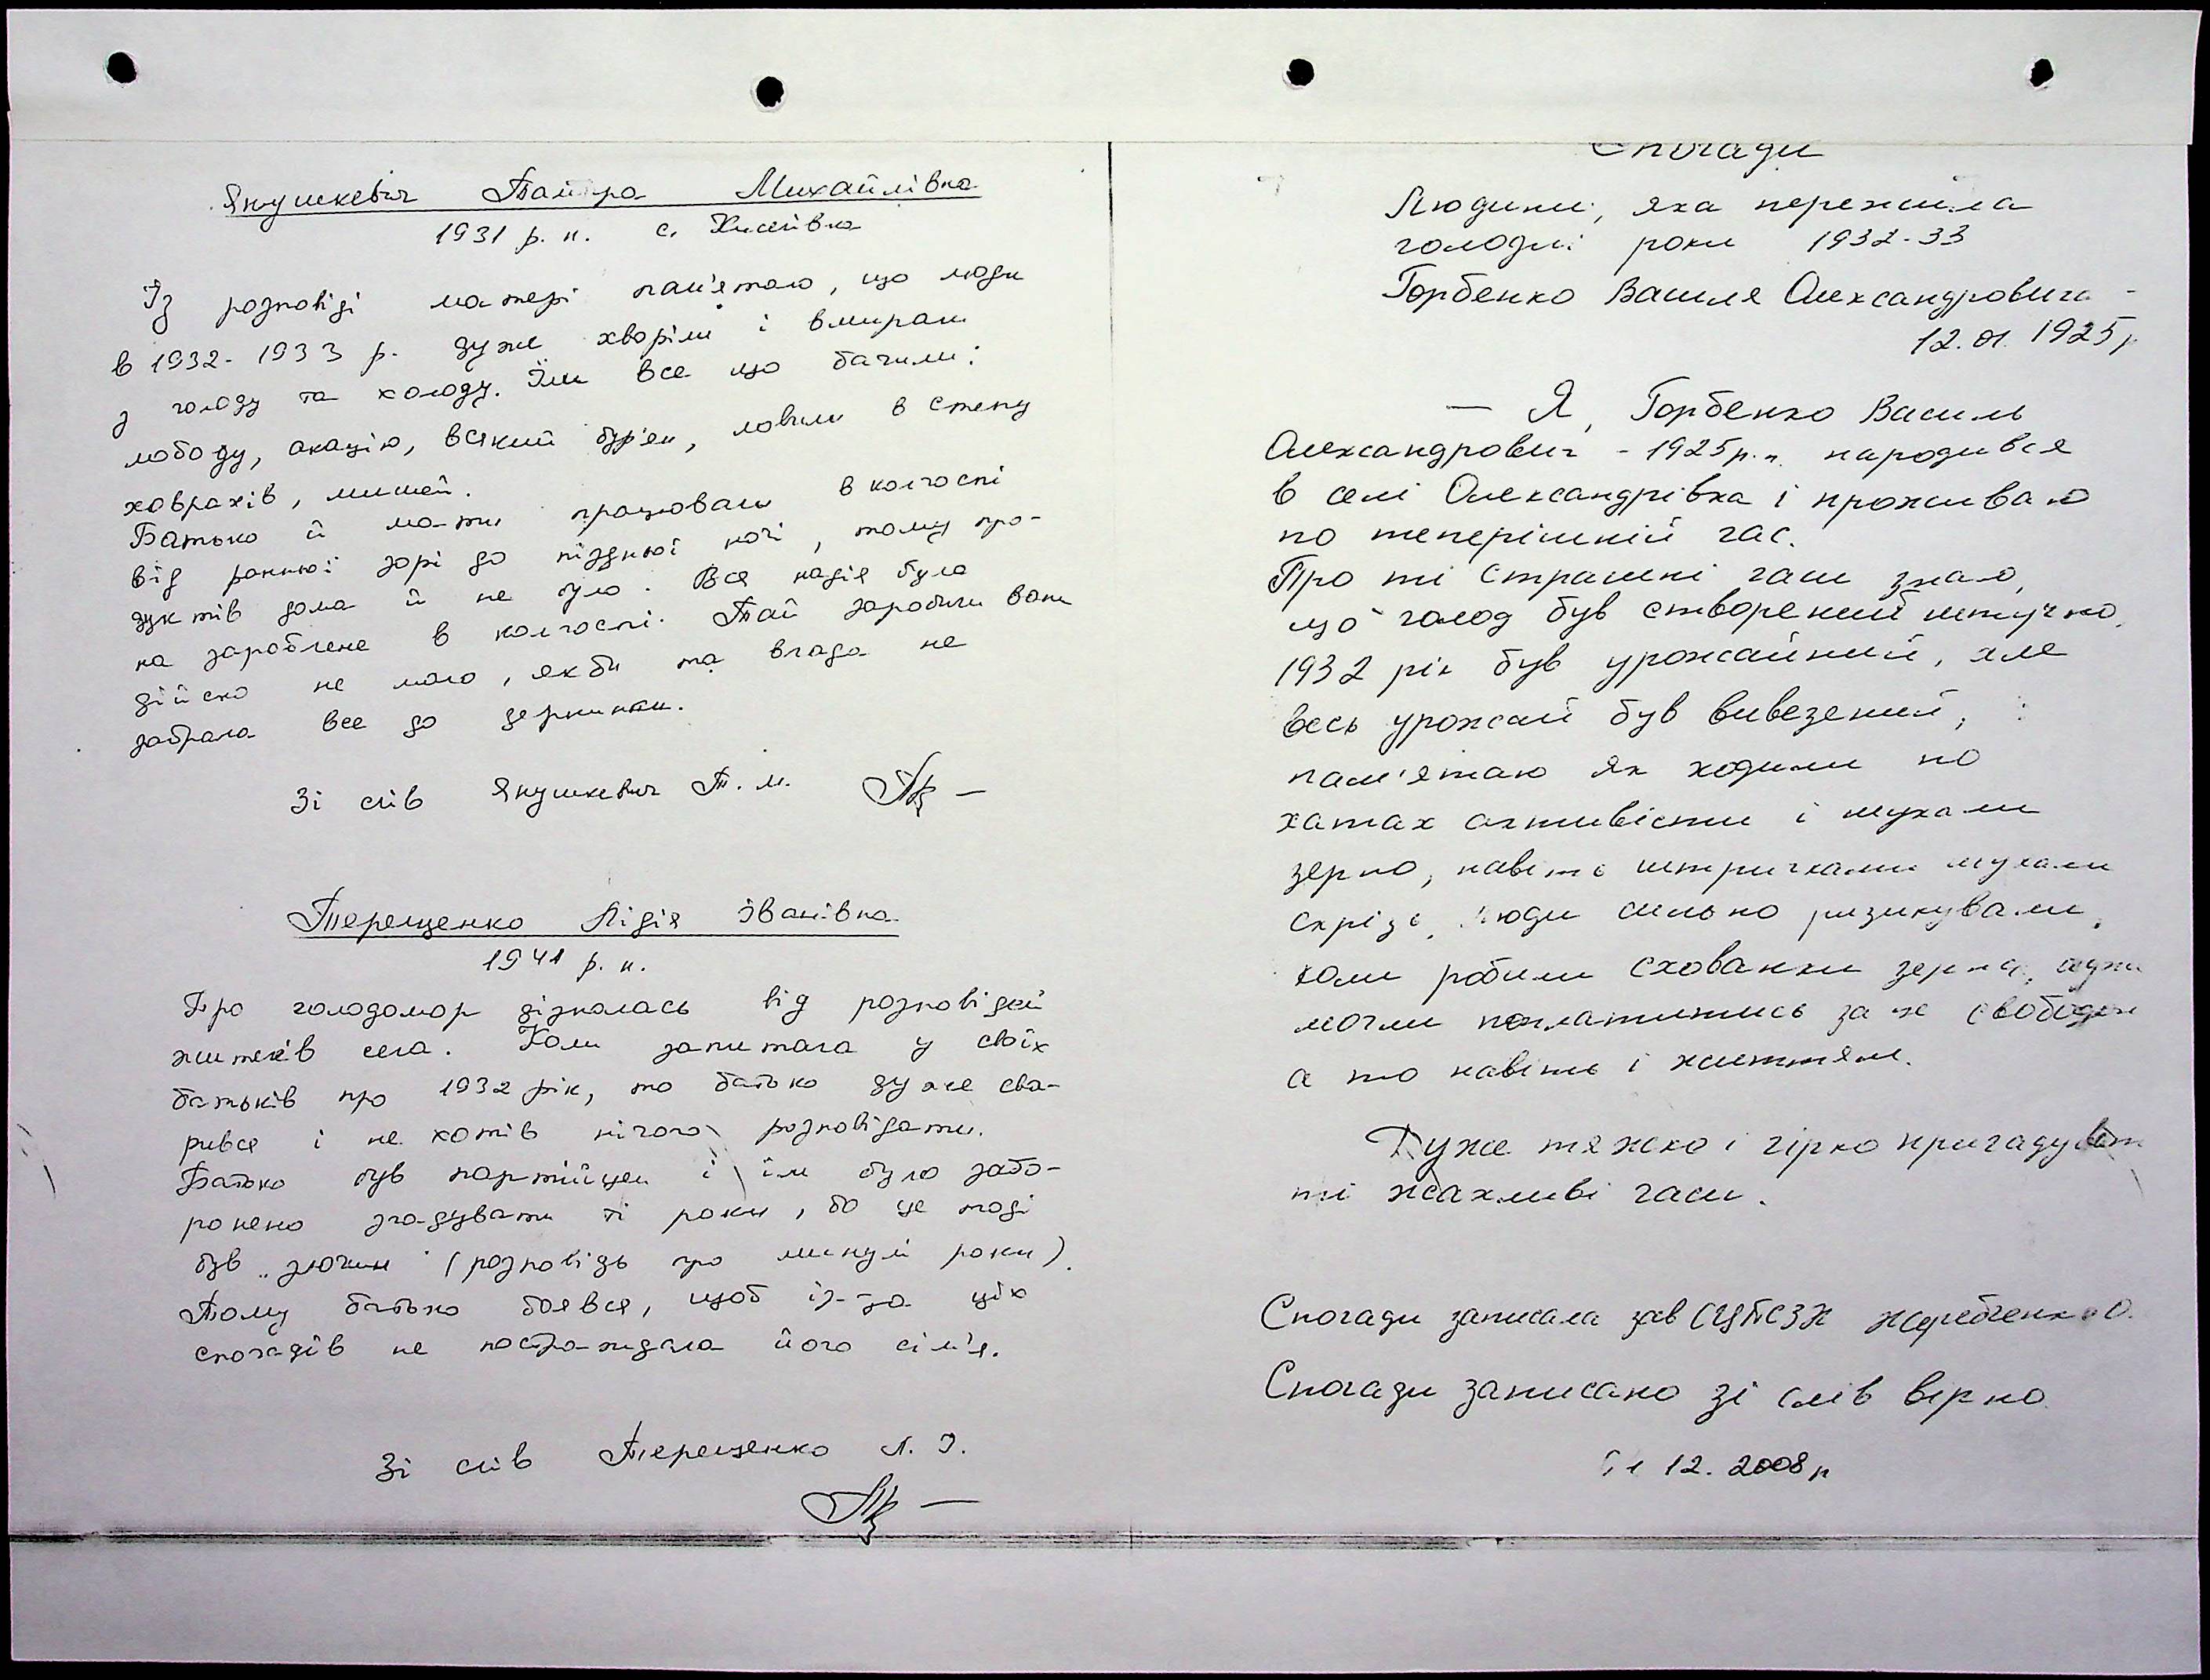 Янушкевич Михайлівна
1931 р. н. с.
Із розповіді матері пам'ятаю, що люди
в 1932-1933 р. дуже хворіли і вмирали
з голоду та холоду. Їли все що бачили:
лободу, акацію, всякий бур'ян, ловили в степу
ховрахів, мишей.
Батько й мати працювали в колгоспі
від ранньої зорі до піздньої ночі, тому про-
дуктів дома й не було. Вся надія була
на зароблене в колгоспі. Тай заробили вони
дійсно не мало, якби та влада не
забрала все до
Зі слів Янушкевич Т. М.
Терещенко Лідія Іванівна
1941 р. н.
Про голодомор дізналась від розповідей
жителів села. Коли запитала у своїх
батьків про 1932 рік, то батько дуже сва-
рився і не хотів нічого розповідати.
Батько був партійцем і їм було забо-
ронено згадувати ті роки, бо це тоді
був „злочин" (розповідь про минулі роки).
Тому батько боявся, щоб із-за цих
спогадів не постраждала його сім'я.
Зі слів Терещенко Л. І.
Спогади
Людини, яка пережила
голодні роки 1932-33
Горбенко Василя Олександровича -
12.01.1925р
— Я, Горбенко Василь
Олександрович - 1925р.н. народився
в селі Олександрівка і проживаю
по теперішній час.
Про ті страшні часи знаю,
що голод був створений штучно.
1932 рік був урожайний, але
весь урожай був вивезений,
пам'ятаю як ходили по
хатах активісти і шукали
зерно, навіть штричками шукали
скрізь. Люди сильно ризикували,
коли робили схованки зерна,
могли поплатитись за це свободою
а то навіть і життям.
Дуже тяжко і гірко пригадувати
ті жахливі часи.
Спогади записала зав СЦПСЗН
Спогади записано зі слів вірно
12. 2008р